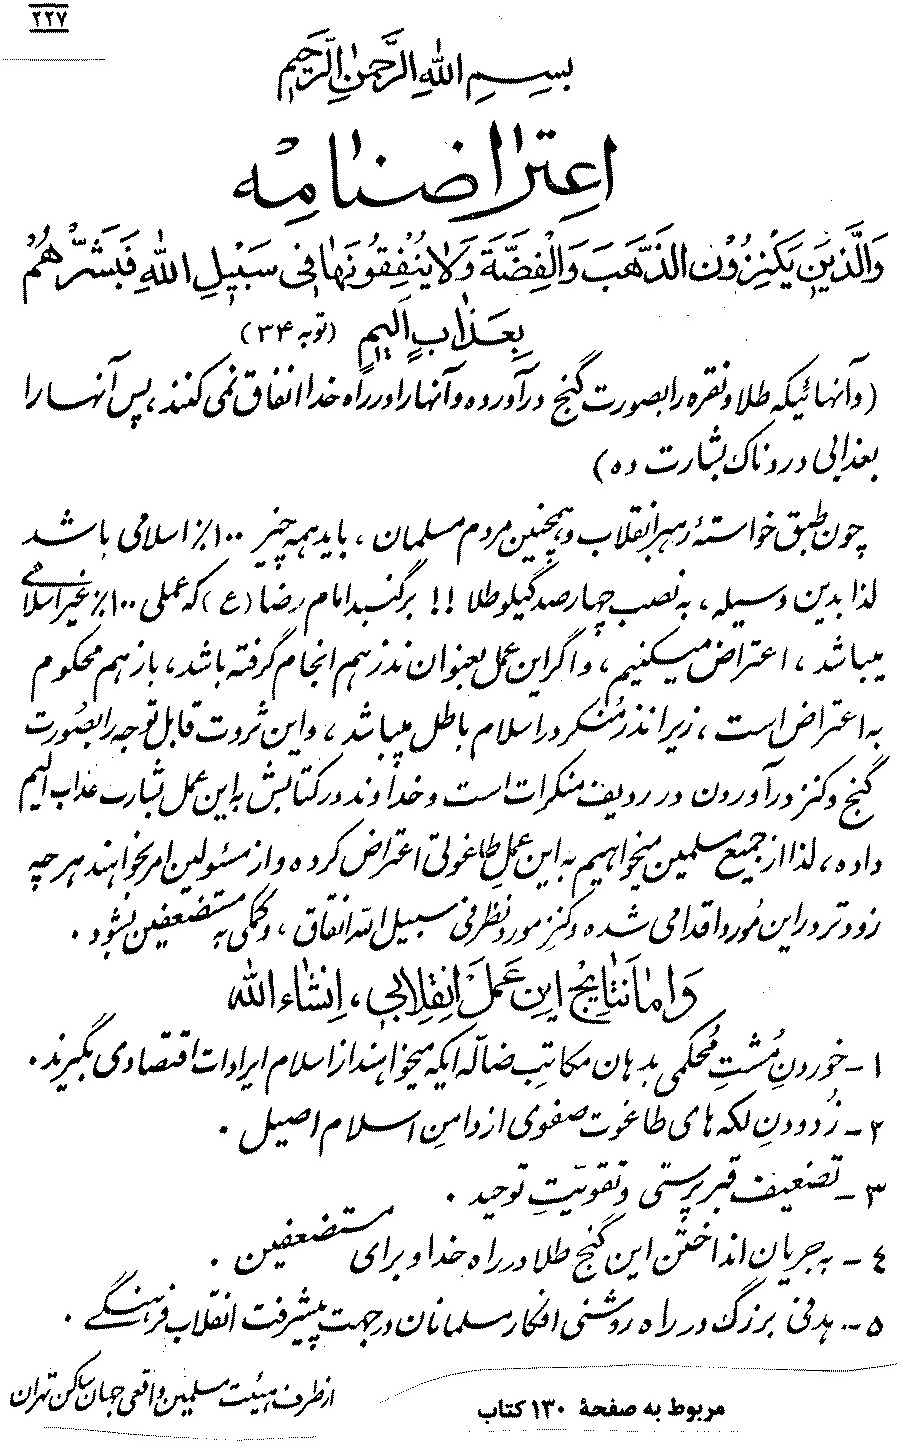 ۲۲۷
بِسْمِ اللهِ الرَّحمٰنِ الرَّحیمِ
اعتراضنامه
وَالَّذینَ یَکْنِزُوْنَ الذَّهَبَ وَالْفِضَّةَ وَلٰا یُنْفِقُونَهٰا فی سَبیْلِ اللهِ فَبَشِّرْهُمْ
بِعَذٰابٍ اَلیمٍ (توبه ۳۴)
(وآنهائیکه طلا و نقره را بصورت گنج درآورده و آنها را در راه خدا انفاق نمی کنند، پس آنها را
بعذابی دردناک بشارت ده)
چون طبق خواستهٔ رهبر انقلاب و همچنین مردم مسلمان، باید همه چیز ۱۰۰٪ اسلامی باشد
لذا بدین وسیله، به نصب چهارصد کیلو طلا !! بر گنبد امام رضا (ع) که عملی ۱۰۰٪ غیر اسلامی
میباشد، اعتراض میکنیم، و اگر این عمل بعنوان نذر هم انجام گرفته باشد، باز هم محکوم
به اعتراض است، زیرا نذر مُنکر در اسلام باطل میباشد، و این ثروت قابل توجه را بصُورت
گنج و کنز درآوردن در ردیف منکرات است و خداوند در کتابش به این عمل بشارت عذاب الیم
داده، لذا از جمیع مسلمین میخواهیم به این عملِ طاغوتی اعتراض کرده و از مسئولین امر بخواهند هر چه
زودتر در این مُورد اقدامی شده و کنزِ مورد نظر فی سبیل الله انفاق، و کمکی به مستضعفین بشود.
وَ امّا نَتٰایِج این عَمَلَ اِنقِلابی، اِنشٰاء الله
۱- خوردنِ مُشتِ مُحکمی بدهان مکاتبِ ضالّه ایکه میخواهند از اسلام ایرادات اقتصادی بگیرند.
۲- زُدودنِ لکه های طاغوت صفوی از دامنِ اسلام اصیل.
۳- تضعیف قبرپرستی و تقویّتِ توحید.
٤- به جریان انداختن این گنج طلا در راه خدا و برای مستضعفین.
۵- هدفی بزرگ در راه روشنی افکار مسلمانان در جهت پیشرفت انقلاب فرهنگی.
از طرف هیئت مسلمین واقعی جهان ساکن تهران
مربوط به صفحهٔ ۱۳۰ کتاب